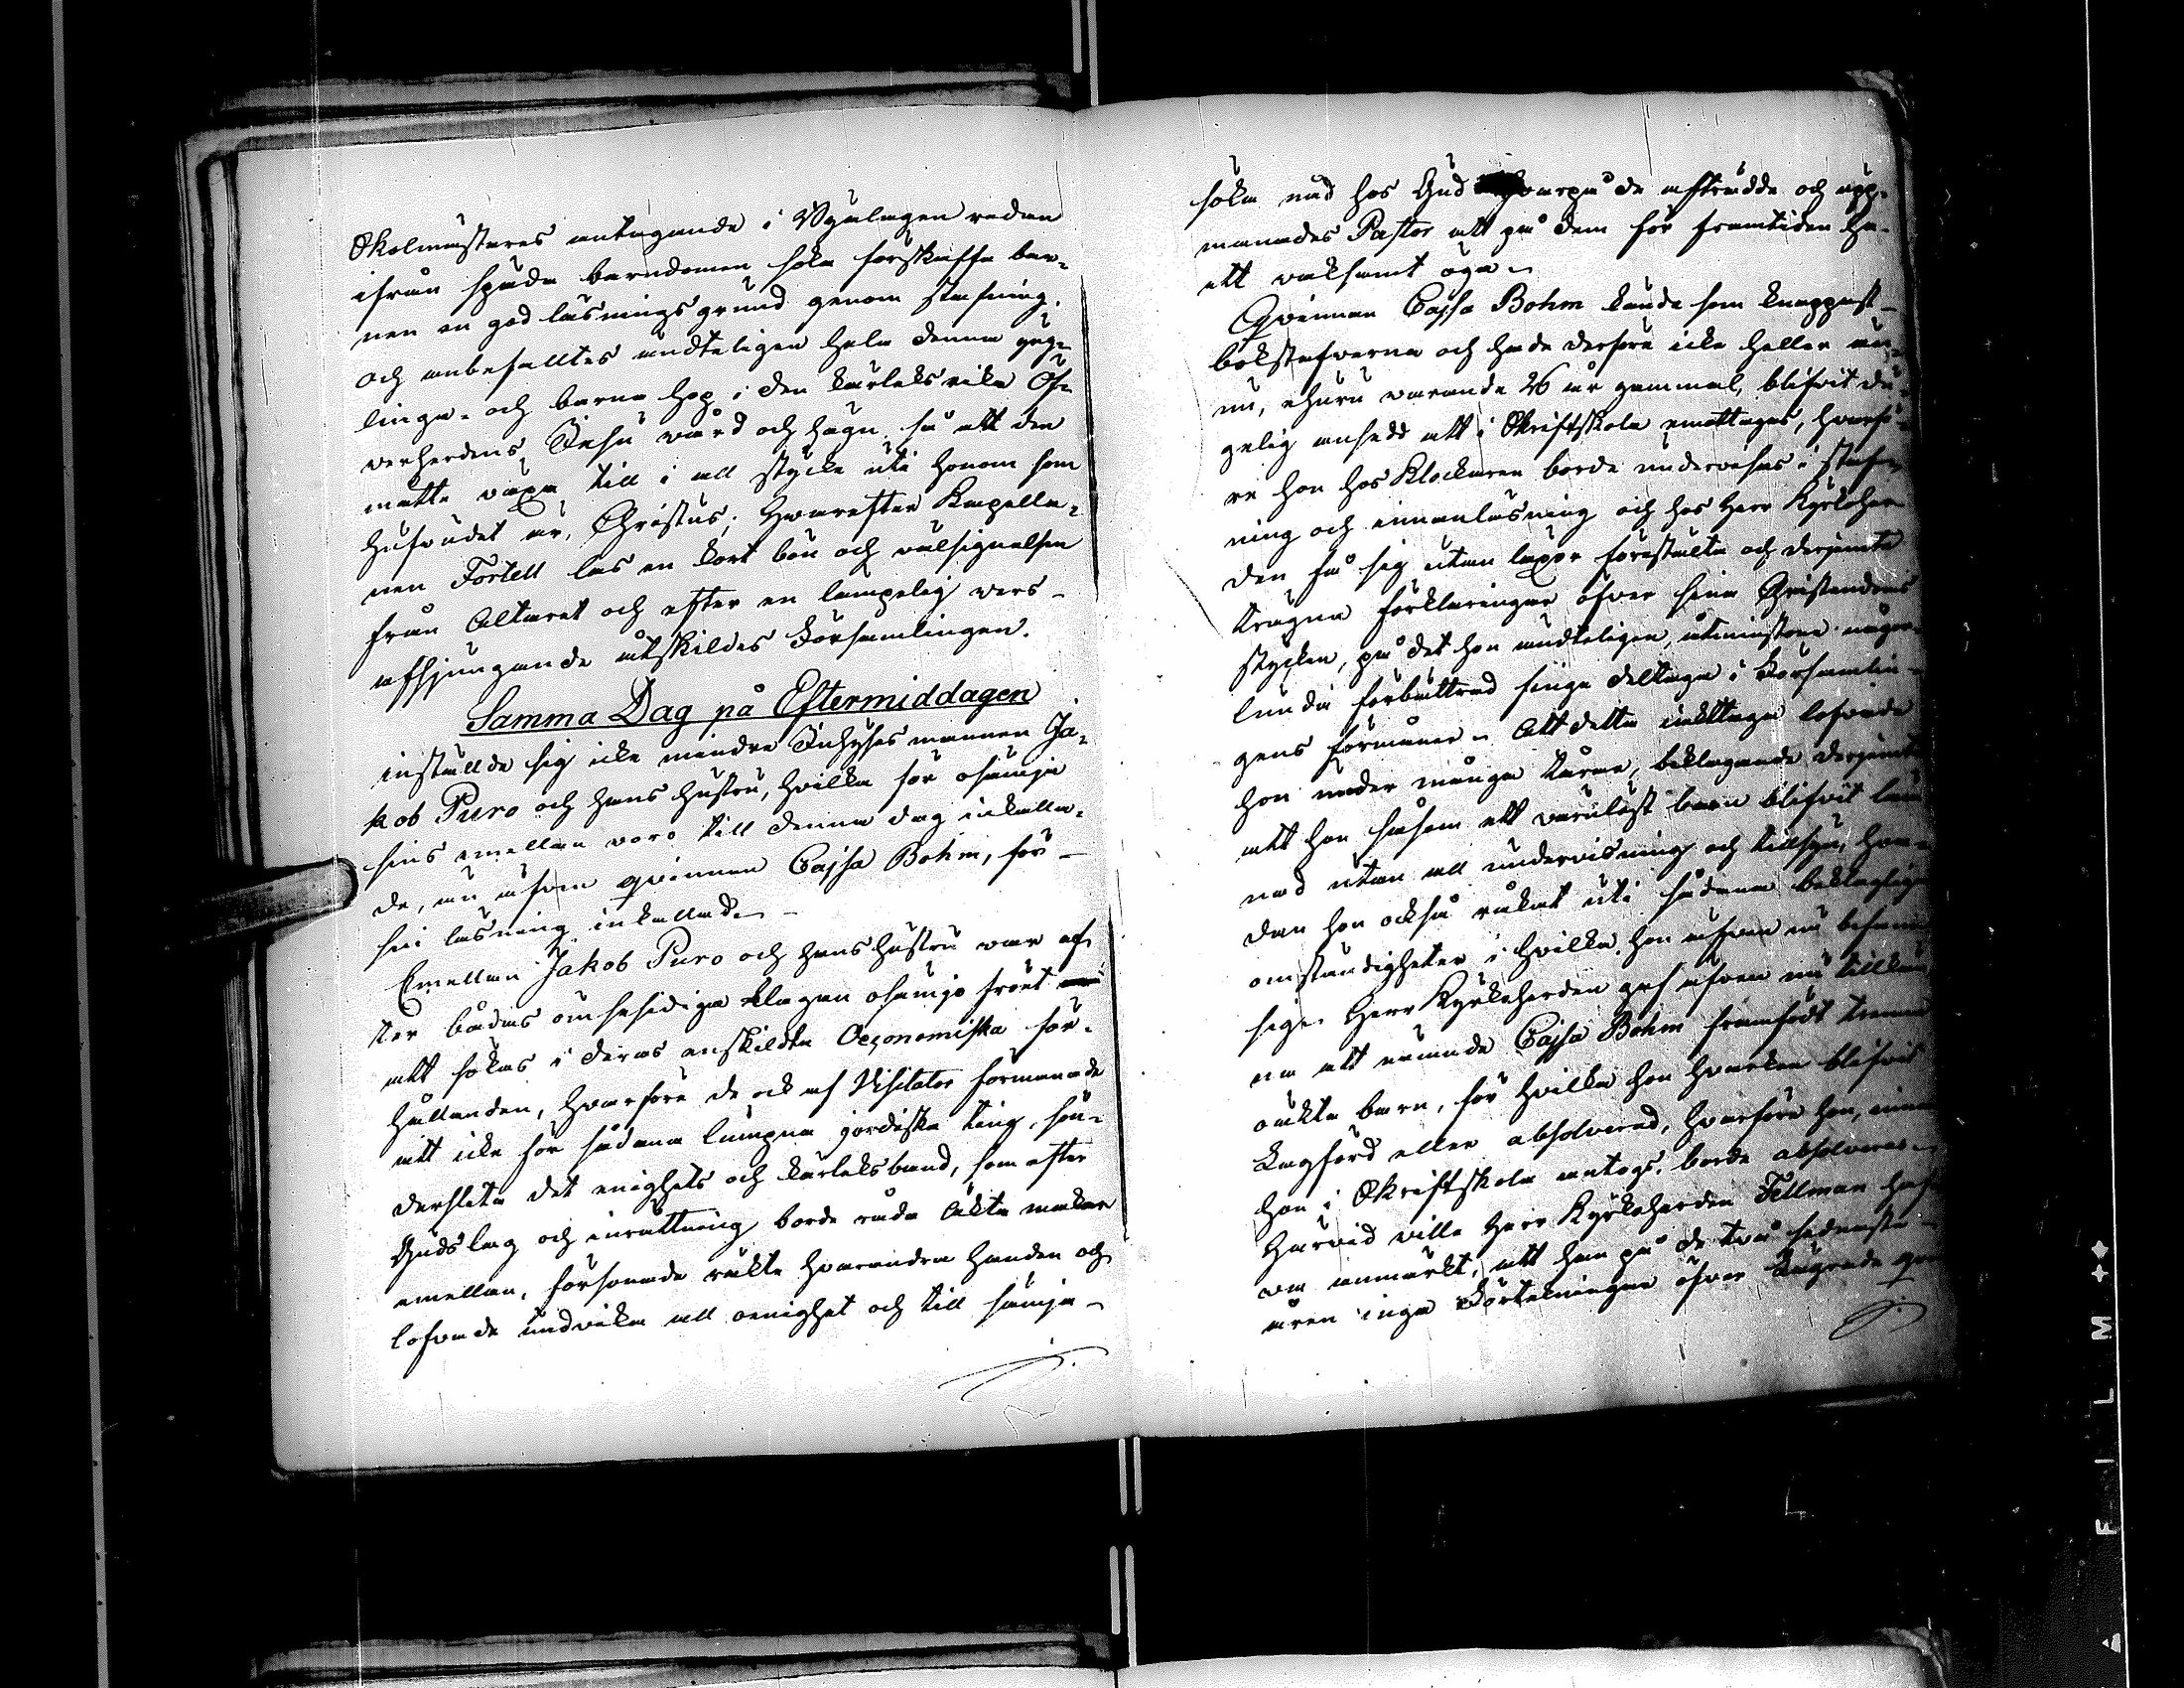 Skolmästares antagande i Byalagen redan
ifrån späda barndomen söka förskaffa bar-
nen en god läsnings grund genom stafning.
och anbefalltes ändteligen hela denna yng-
linga- och barna hop i den kärleksrika Öf-
verherdens Jesu vård och hägn så att de
måtte växa till i all stycke uti honom som
hufvudet är, Christus; Hvarefter Kapella-
nen Fortell läs en kort bön och välsignelsen
från Altaret och efter en lämpelig vers-
afsjungande åtskildes Församlingen.
Samma Dag på Eftermiddagen
inställde sig icke mindre Inhyses mannen Ja-
kob Puro och hans hustru, hvilka för osämja
sins emellan voro till denna dag inkalla-
de, än äfven qvinnan Cajsa Bohm, för
sin läsning inkallad.
Emellan Jakob Puro och hans hustru var ef-
ter bådas ömsesidiga klagan osämjo fröet
att sökas i deras enskildta Oeconomiska för-
hållanden, hvarföre de ock af Visitator förmanade
att icke för sådana lumpna jordiska ting, sön-
derslita det enighets och kärleksband, som efter
Guds lag och inrättning borde råda Äkta makar
emellan, försonade räkte hvarandra handen och
lofvade undvika all oenighet och till sämja
söka nåd hos Gud hvarpå de afträdde och upp-
manades Pastor att på dem för framtiden ha-
ett vaksamt öga.
Qvinnan Cajsa Bohm kände som knappast
bokstafverna och hade derföre icke heller än-
nu, ehuru varande 26 år gammal, blifvit du-
gelig ansedd att i Skriftskola emottagas, hvarfö-
re hon hos Klockaren borde undervisas i staf-
ning och innanläsning och hos Herr Kyrkoher-
den få sig utan läxor föreställte och derjemte
trägna förklaringar öfver sina Christendoms
stycken, på det hon ändteligen, åtminstone någor-
lunda förbättrad finge deltaga i Församlin-
gens förmåner. Att detta iakttaga lofvade
hon under många tårar, beklagande derjemte
att hon såsom ett värnlöst barn blifvit läm-
nad utan all undervisning och tillsyn, hva-
dan hon också råkat uti sådana beklagliga
omständigheter i hvilka hon äfven nu befann
sig. Herr Kyrkoherden gaf äfven nu tillkän-
na att nämnde Cajsa Bohm framfödt trenne
oäkta barn, för hvilka hon hvarken blifvit
lagförd eller absolverad, hvarföre hon, innan
hon i Skriftskola antogs, borde absolveras.
Härvid ville Herr Kyrkoherden Fellman haf-
va anmärkt, att han på de två sednaste
åren inga Förteckningar öfver lägrade qvin